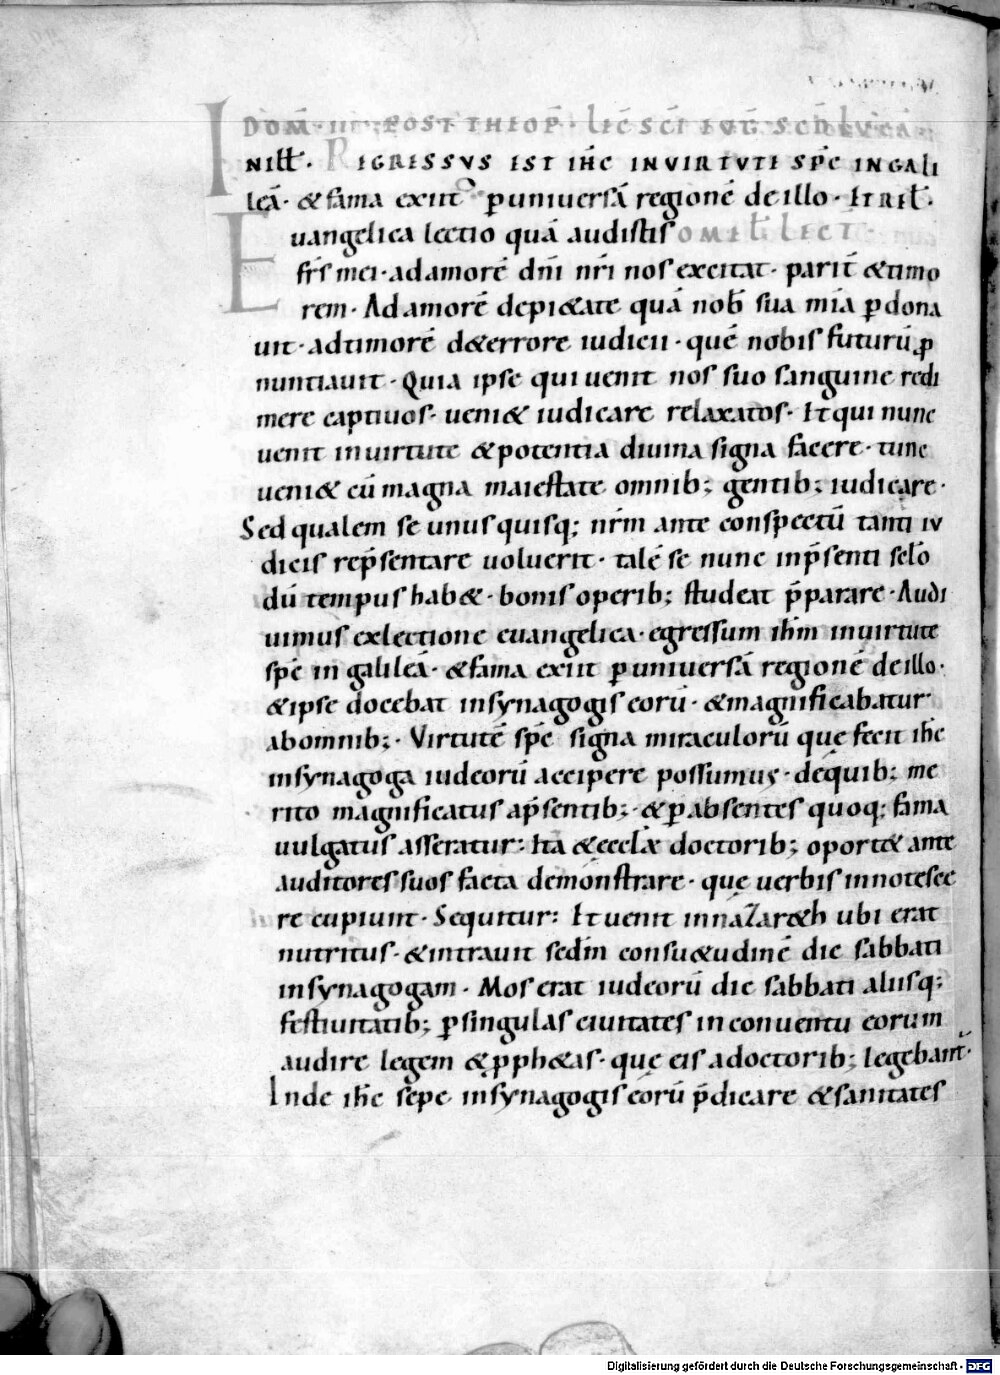 DOM̄ · III · POST THEOPH̄ · LEC̄ SC̄I EVG̅ SCD̄ LVCĀ
IN ILL̅. REGRESSVS EST IH̅C IN VIRTVTE SPC̅ IN GALI
leā · & fama exiit ꝑ uniuersā regionē de illo · ET REL̅.
Euangelica lectio quā audistis OMEL̅ LECT.
fr̅s mei · ad amorē dn̅i nr̅i nos excitat · parit̅ & timo
rem · Ad amorē de pi&ate quā nob̅ sua mi̅a ꝑdona
uit · ad timorē d& errore iudicii · quē nobis futurū p̱
nuntiauit · Quia ipse qui uenit nos suo sanguine redi
mere captiuos · ueni& iudicare relaxatos · Et qui nunc
uenit in uirtute & potentia diuina signa facere · tunc
ueni& cū magna maiestate omnib; gentib; iudicare ·
Sed qualem se unusquisq; nr̅m ante conspectū tanti iu
dicis rep̅sentare uoluerit · talē se nunc in p̅senti sc̅lo
dū tempus hab& · bonis operib; studeat p̅parare · Audi
uimus ex lectione euangelica · egressum ih̅m in uirtute
spc̅ in galileā · & fama exiit ꝑ uniuersā regionē de illo ·
& ipse docebat in synagogis eorū · & magnificabatur
ab omnib; · Virtutē spc̅ signa miraculorū quę fecit ih̅c
in synagoga iudeorū accipere possumus · de quib; me
rito magnificatus a p̅sentib; · & ꝑ absentes quoq; fama
uulgatus asseratur: Ita & ęccl̅ę doctorib; oport& ante
auditores suos facta demonstrare · quę uerbis innotesce
re cupiunt · Sequitur: Et uenit in nazar&h ubi erat
nutritus · & intrauit scd̅m consu&udinē die sabbati
in synagogam · Mos erat iudeorū die sabbati aliisq;
festiuitatib; ꝑ singulas ciuitates in conuentu eorum
audire legem & p̱ph&as · quę eis a doctorib; legebant̅ ·
Inde ih̅c sępe in synagogis eorū p̅dicare & sanitates
Digitalisierung gefördert durch die Deutsche Forschungsgemeinschaft - DFG